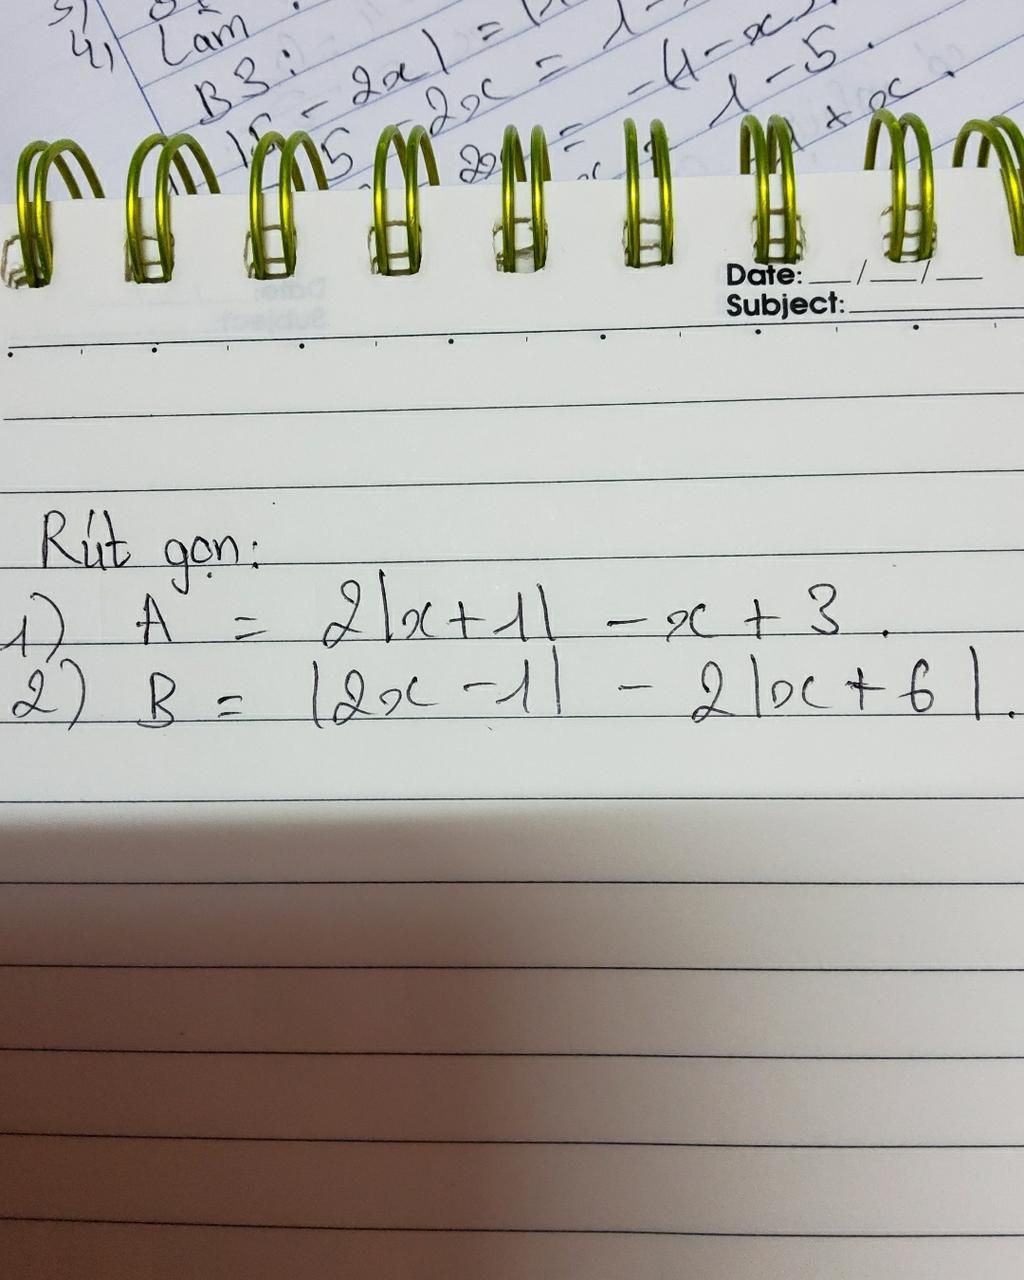 4) Làm
B3:
- 2x| =
5 - 2x = 1 -
2x = -4 - x
1 - 5.
+ x.
Date: __/__/__
Subject:
Rút gọn:
1) A = 2|x+1| - x + 3.
2) B = |2x - 1| - 2|x + 6|.